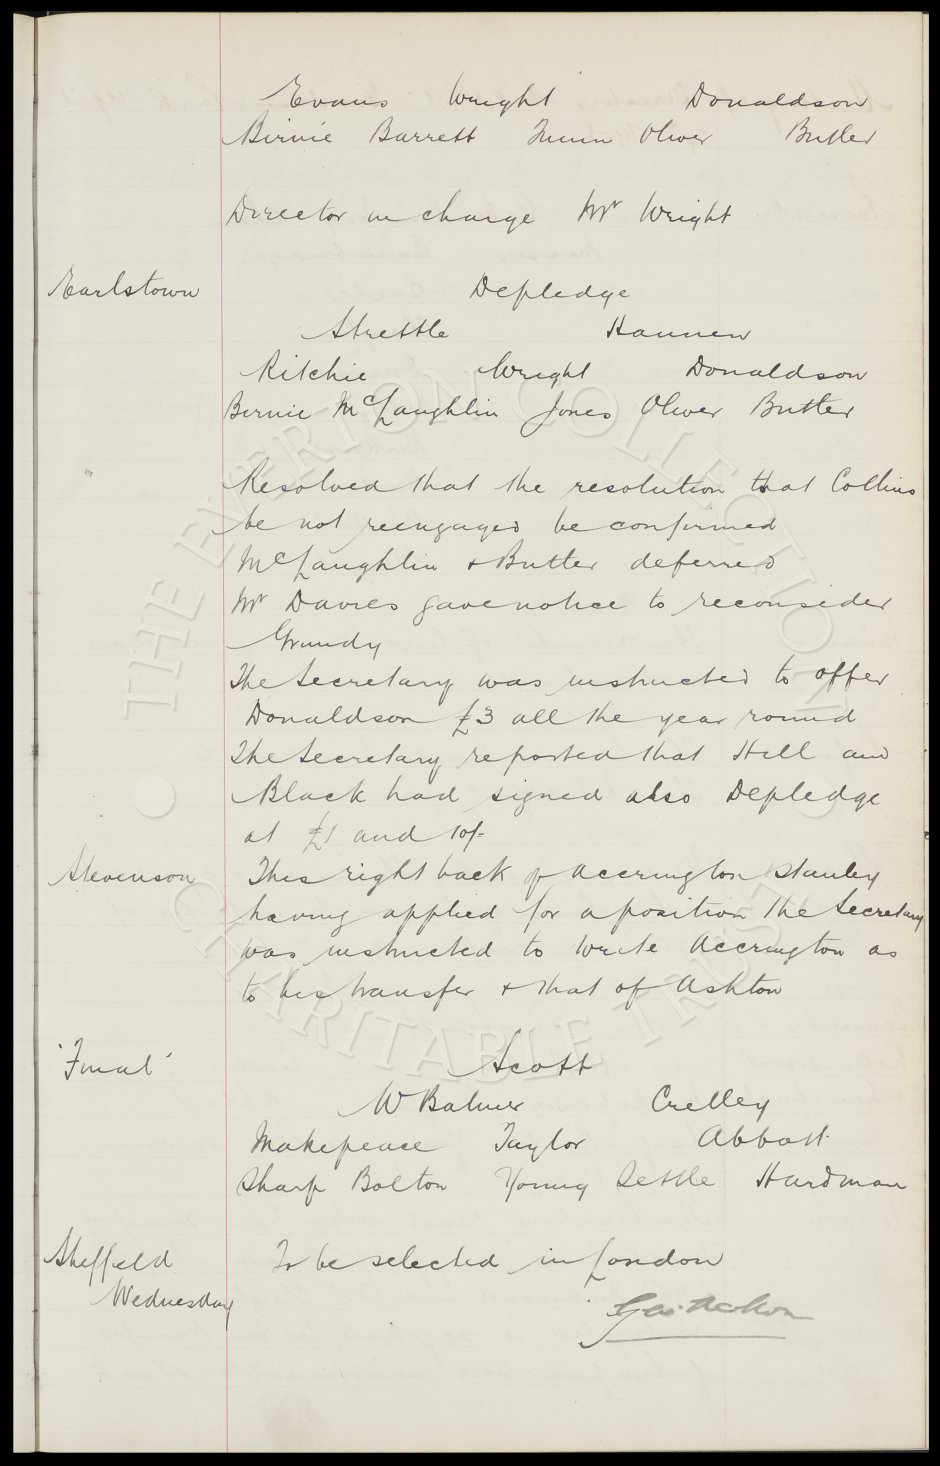 Evans Wright Donaldson
Birnie Barrett Oliver Butler
Director in charge Mr Wright
Earlstown Depledge
Strettle Hannen
Ritchie Wright Donaldson
Birnie McLaughlin Jones Oliver Butler
Resolved that the resolution that Collins
be not reengaged be confirmed
McLaughlin & Butler deferred
Mr Davies gave notice to reconsider
Grundy
The Secretary was instructed to offer
Donaldson £3 all the year round
The Secretary reported that Hill and
Black had signed also Depledge
at £1 and 10/-
Stevenson This right back of Accrington Stanley
having applied for a position the Secretary
was instructed to write Accrington as
to his transfer & that of Ashton
'Final' Scott
W Balmer Crelley
Makepeace Taylor Abbott
Sharp Bolton Young Settle Hardman
Sheffield To be selected in London
Wednesday
THE EVERTON COLLECTION
CHARITABLE TRUST